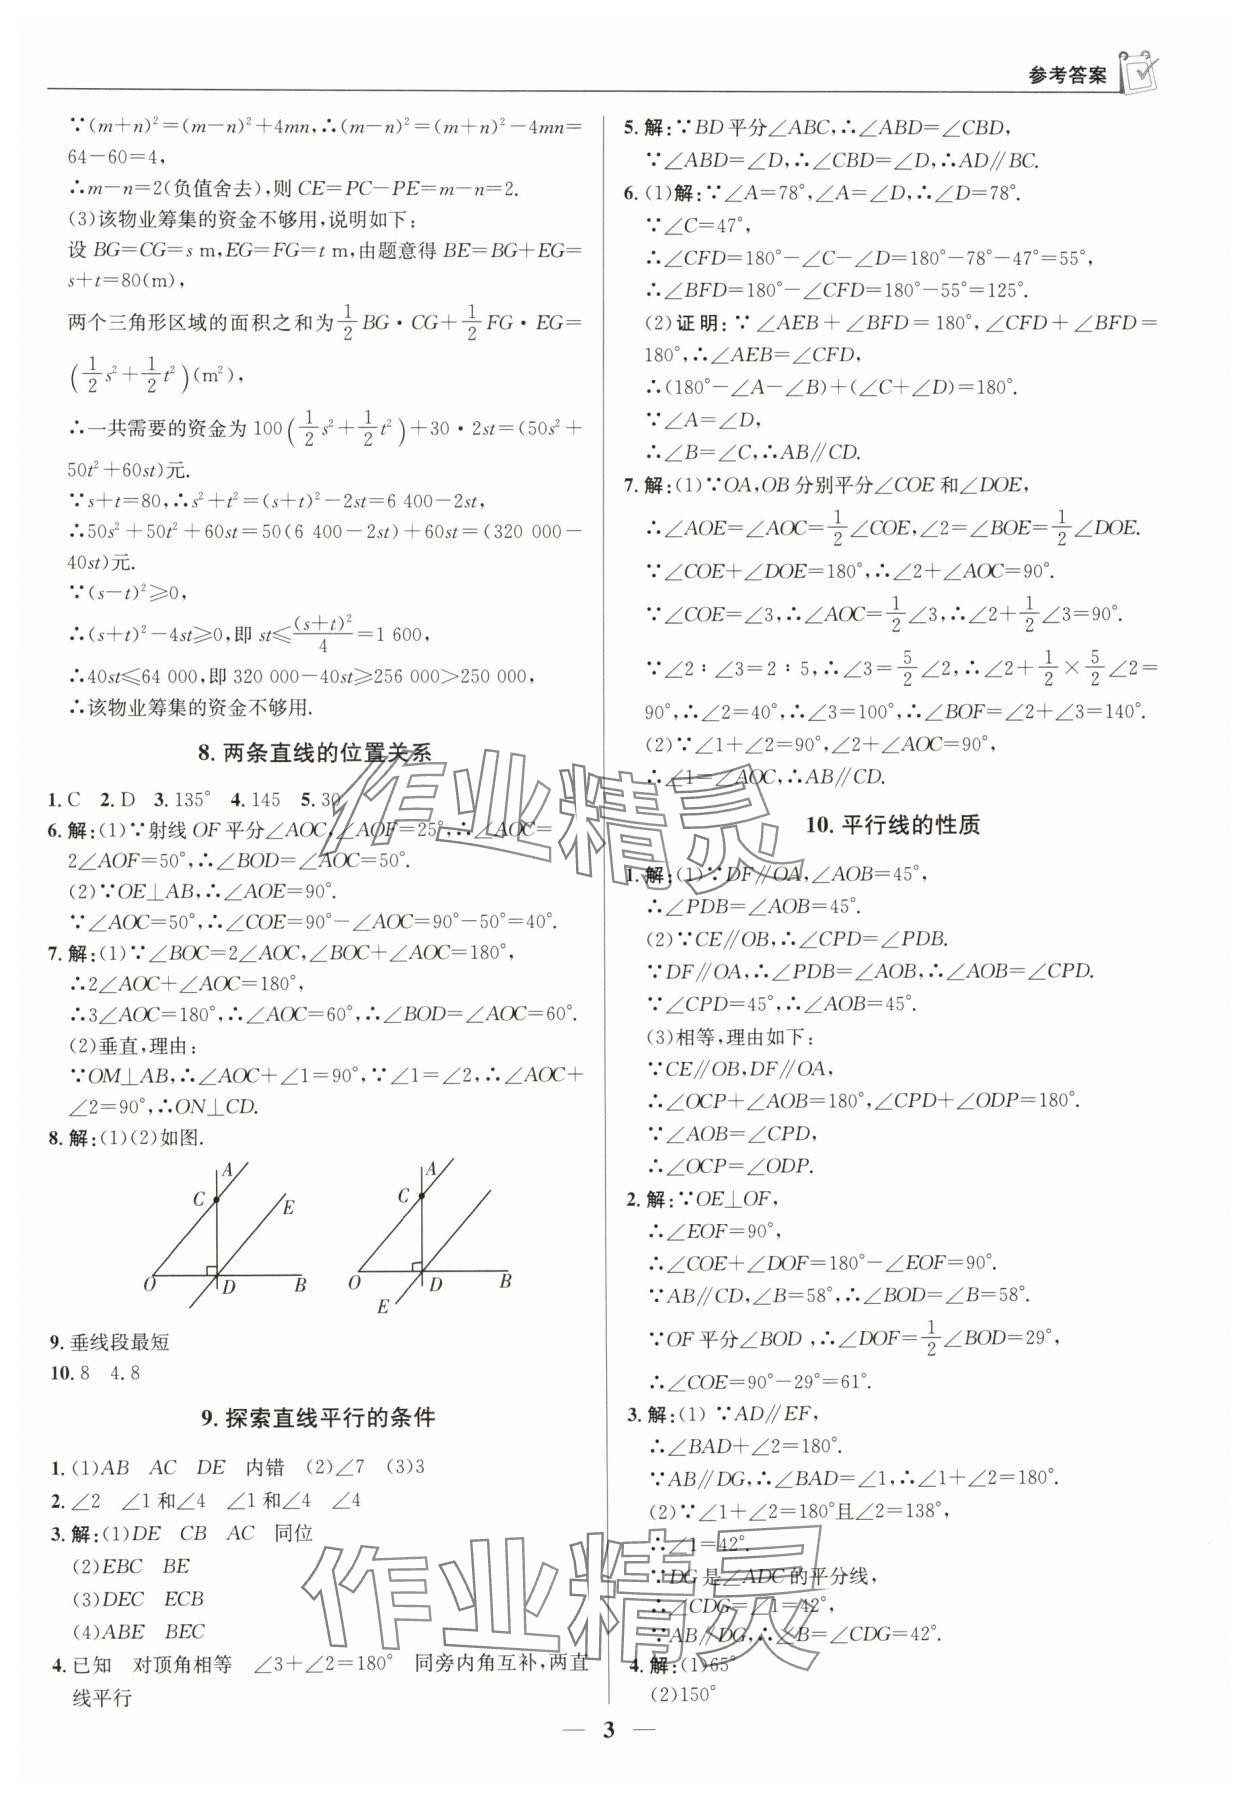 参考答案
∵(m+n)²=(m-n)²+4mn,∴(m-n)²=(m+n)²-4mn=
64-60=4,
∴m-n=2(负值舍去),则 CE=PC-PE=m-n=2.
(3)该物业筹集的资金不够用,说明如下:
设 BG=CG=s m,EG=FG=t m,由题意得 BE=BG+EG=
s+t=80(m),
两个三角形区域的面积之和为1/2 BG·CG+1/2 FG·EG=
(1/2 s²+1/2 t²)(m²),
∴一共需要的资金为 100(1/2 s²+1/2 t²)+30·2st=(50s²+
50t²+60st)元.
∵s+t=80,∴s²+t²=(s+t)²-2st=6 400-2st,
∴50s²+50t²+60st=50(6 400-2st)+60st=(320 000-
40st)元.
∵(s-t)²≥0,
∴(s+t)²-4st≥0,即 st≤(s+t)²/4=1 600,
∴40st≤64 000,即 320 000-40st≥256 000>250 000,
∴该物业筹集的资金不够用.
8. 两条直线的位置关系
1. C 2. D 3. 135° 4. 145 5. 30
6. 解:(1)∵射线 OF 平分∠AOC,∠AOF=25°,∴∠AOC=
2∠AOF=50°,∴∠BOD=∠AOC=50°.
(2)∵OE⊥AB,∴∠AOE=90°.
∵∠AOC=50°,∴∠COE=90°-∠AOC=90°-50°=40°.
7. 解:(1)∵∠BOC=2∠AOC,∠BOC+∠AOC=180°,
∴2∠AOC+∠AOC=180°,
∴3∠AOC=180°,∴∠AOC=60°,∴∠BOD=∠AOC=60°.
(2)垂直,理由:
∵OM⊥AB,∴∠AOC+∠1=90°,∵∠1=∠2,∴∠AOC+
∠2=90°,∴ON⊥CD.
8. 解:(1)(2)如图.
A C E O D B
A C O D B E
9. 垂线段最短
10. 8 4.8
9. 探索直线平行的条件
1. (1)AB AC DE 内错 (2)∠7 (3)3
2. ∠2 ∠1和∠4 ∠1和∠4 ∠4
3. 解:(1)DE CB AC 同位
(2)EBC BE
(3)DEC ECB
(4)ABE BEC
4. 已知 对顶角相等 ∠3+∠2=180° 同旁内角互补,两直
线平行
5. 解:∵BD平分∠ABC,∴∠ABD=∠CBD,
∵∠ABD=∠D,∴∠CBD=∠D,∴AD∥BC.
6. (1)解:∵∠A=78°,∠A=∠D,∴∠D=78°.
∵∠C=47°,
∴∠CFD=180°-∠C-∠D=180°-78°-47°=55°,
∴∠BFD=180°-∠CFD=180°-55°=125°.
(2)证明:∵∠AEB+∠BFD=180°,∠CFD+∠BFD=
180°,∴∠AEB=∠CFD,
∴(180°-∠A-∠B)+(∠C+∠D)=180°.
∵∠A=∠D,
∴∠B=∠C,∴AB∥CD.
7. 解:(1)∵OA,OB分别平分∠COE和∠DOE,
∴∠AOE=∠AOC=1/2∠COE,∠2=∠BOE=1/2∠DOE.
∵∠COE+∠DOE=180°,∴∠2+∠AOC=90°.
∵∠COE=∠3,∴∠AOC=1/2∠3,∴∠2+1/2∠3=90°.
∵∠2∶∠3=2∶5,∴∠3=5/2∠2,∴∠2+1/2×5/2∠2=
90°,∴∠2=40°,∴∠3=100°,∴∠BOF=∠2+∠3=140°.
(2)∵∠1+∠2=90°,∠2+∠AOC=90°,
∴∠1=∠AOC,∴AB∥CD.
10. 平行线的性质
1. 解:(1)∵DF∥OA,∠AOB=45°,
∴∠PDB=∠AOB=45°.
(2)∵CE∥OB,∴∠CPD=∠PDB.
∵DF∥OA,∴∠PDB=∠AOB,∴∠AOB=∠CPD.
∵∠CPD=45°,∴∠AOB=45°.
(3)相等,理由如下:
∵CE∥OB,DF∥OA,
∴∠OCP+∠AOB=180°,∠CPD+∠ODP=180°.
∵∠AOB=∠CPD,
∴∠OCP=∠ODP.
2. 解:∵OE⊥OF,
∴∠EOF=90°,
∴∠COE+∠DOF=180°-∠EOF=90°.
∵AB∥CD,∠B=58°,∴∠BOD=∠B=58°.
∵OF平分∠BOD,∴∠DOF=1/2∠BOD=29°,
∴∠COE=90°-29°=61°.
3. 解:(1)∵AD∥EF,
∴∠BAD+∠2=180°.
∵AB∥DG,∴∠BAD=∠1,∴∠1+∠2=180°.
(2)∵∠1+∠2=180°且∠2=138°,
∴∠1=42°.
∵DG是∠ADC的平分线,
∴∠CDG=∠1=42°,
∵AB∥DG,∴∠B=∠CDG=42°.
4. 解:(1)65°
(2)150°
— 3 —
作业精灵
作业精灵